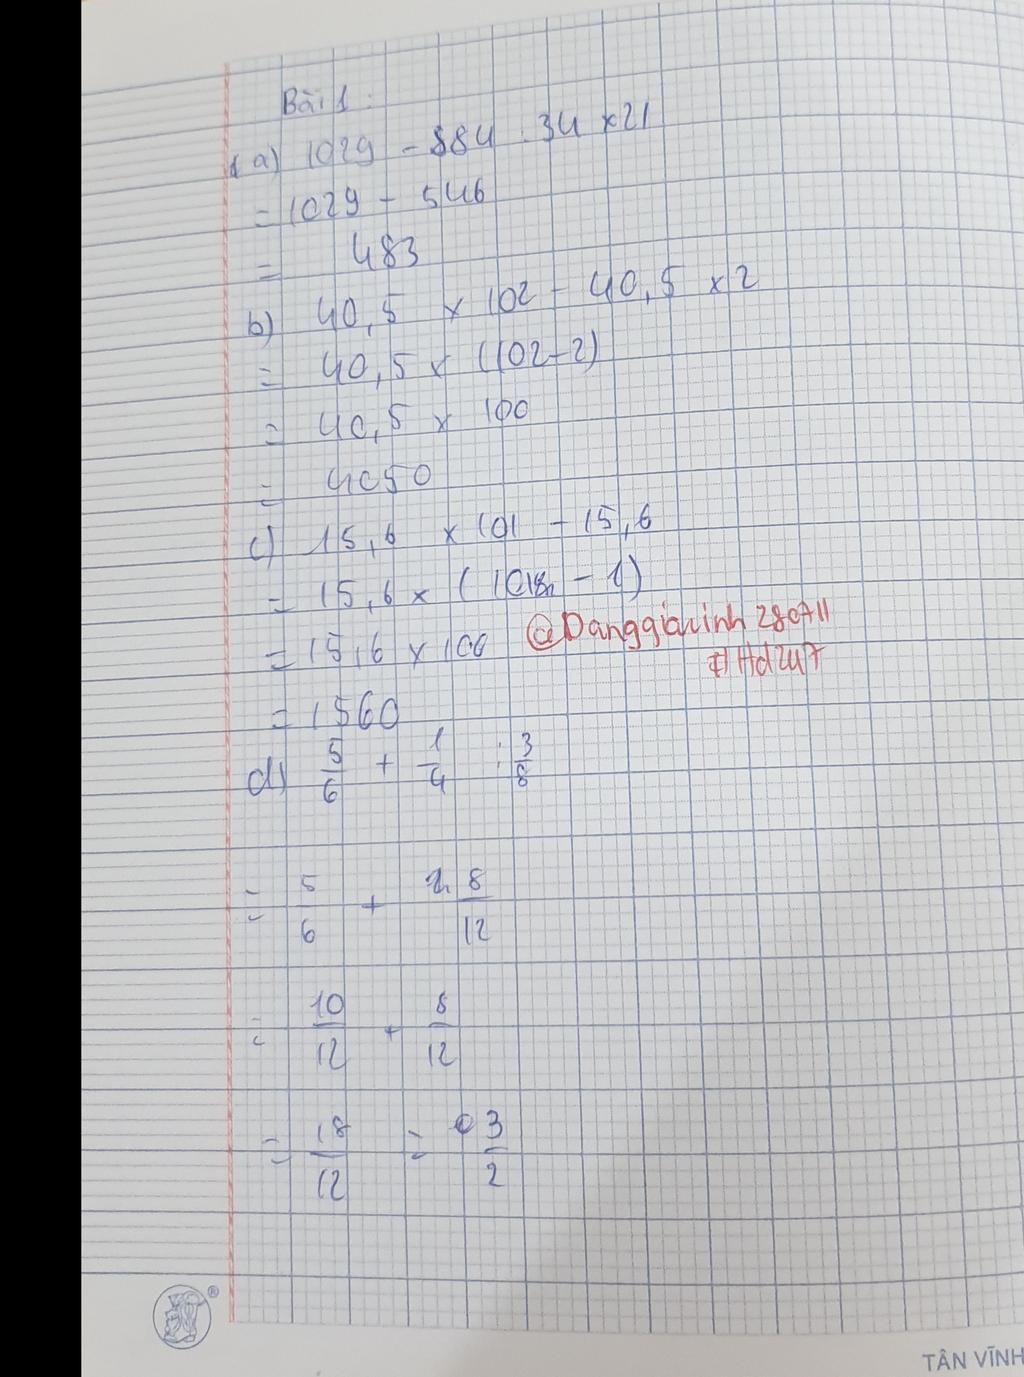 Bài 1:
a) 1029 - 884 : 34 x 21
= 1029 - 546
= 483
b) 40,5 x 102 - 40,5 x 2
= 40,5 x (102 - 2)
= 40,5 x 100
= 4050
c) 15,6 x 101 - 15,6
= 15,6 x (101 - 1)
@Danggiavinh 280711
= 15,6 x 100
#Hd247
= 1560
d) 5/6 + 1/4 : 3/8
= 5/6 + 8/12
= 10/12 + 8/12
= 18/12 = 3/2
TÂN VĨNH